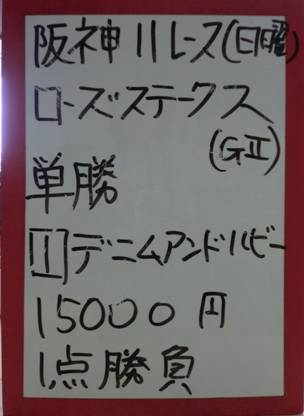 阪神11レース(日曜)
ローズステークス
(GⅡ)
単勝
11デニムアンドルビー
15000円
1点勝負